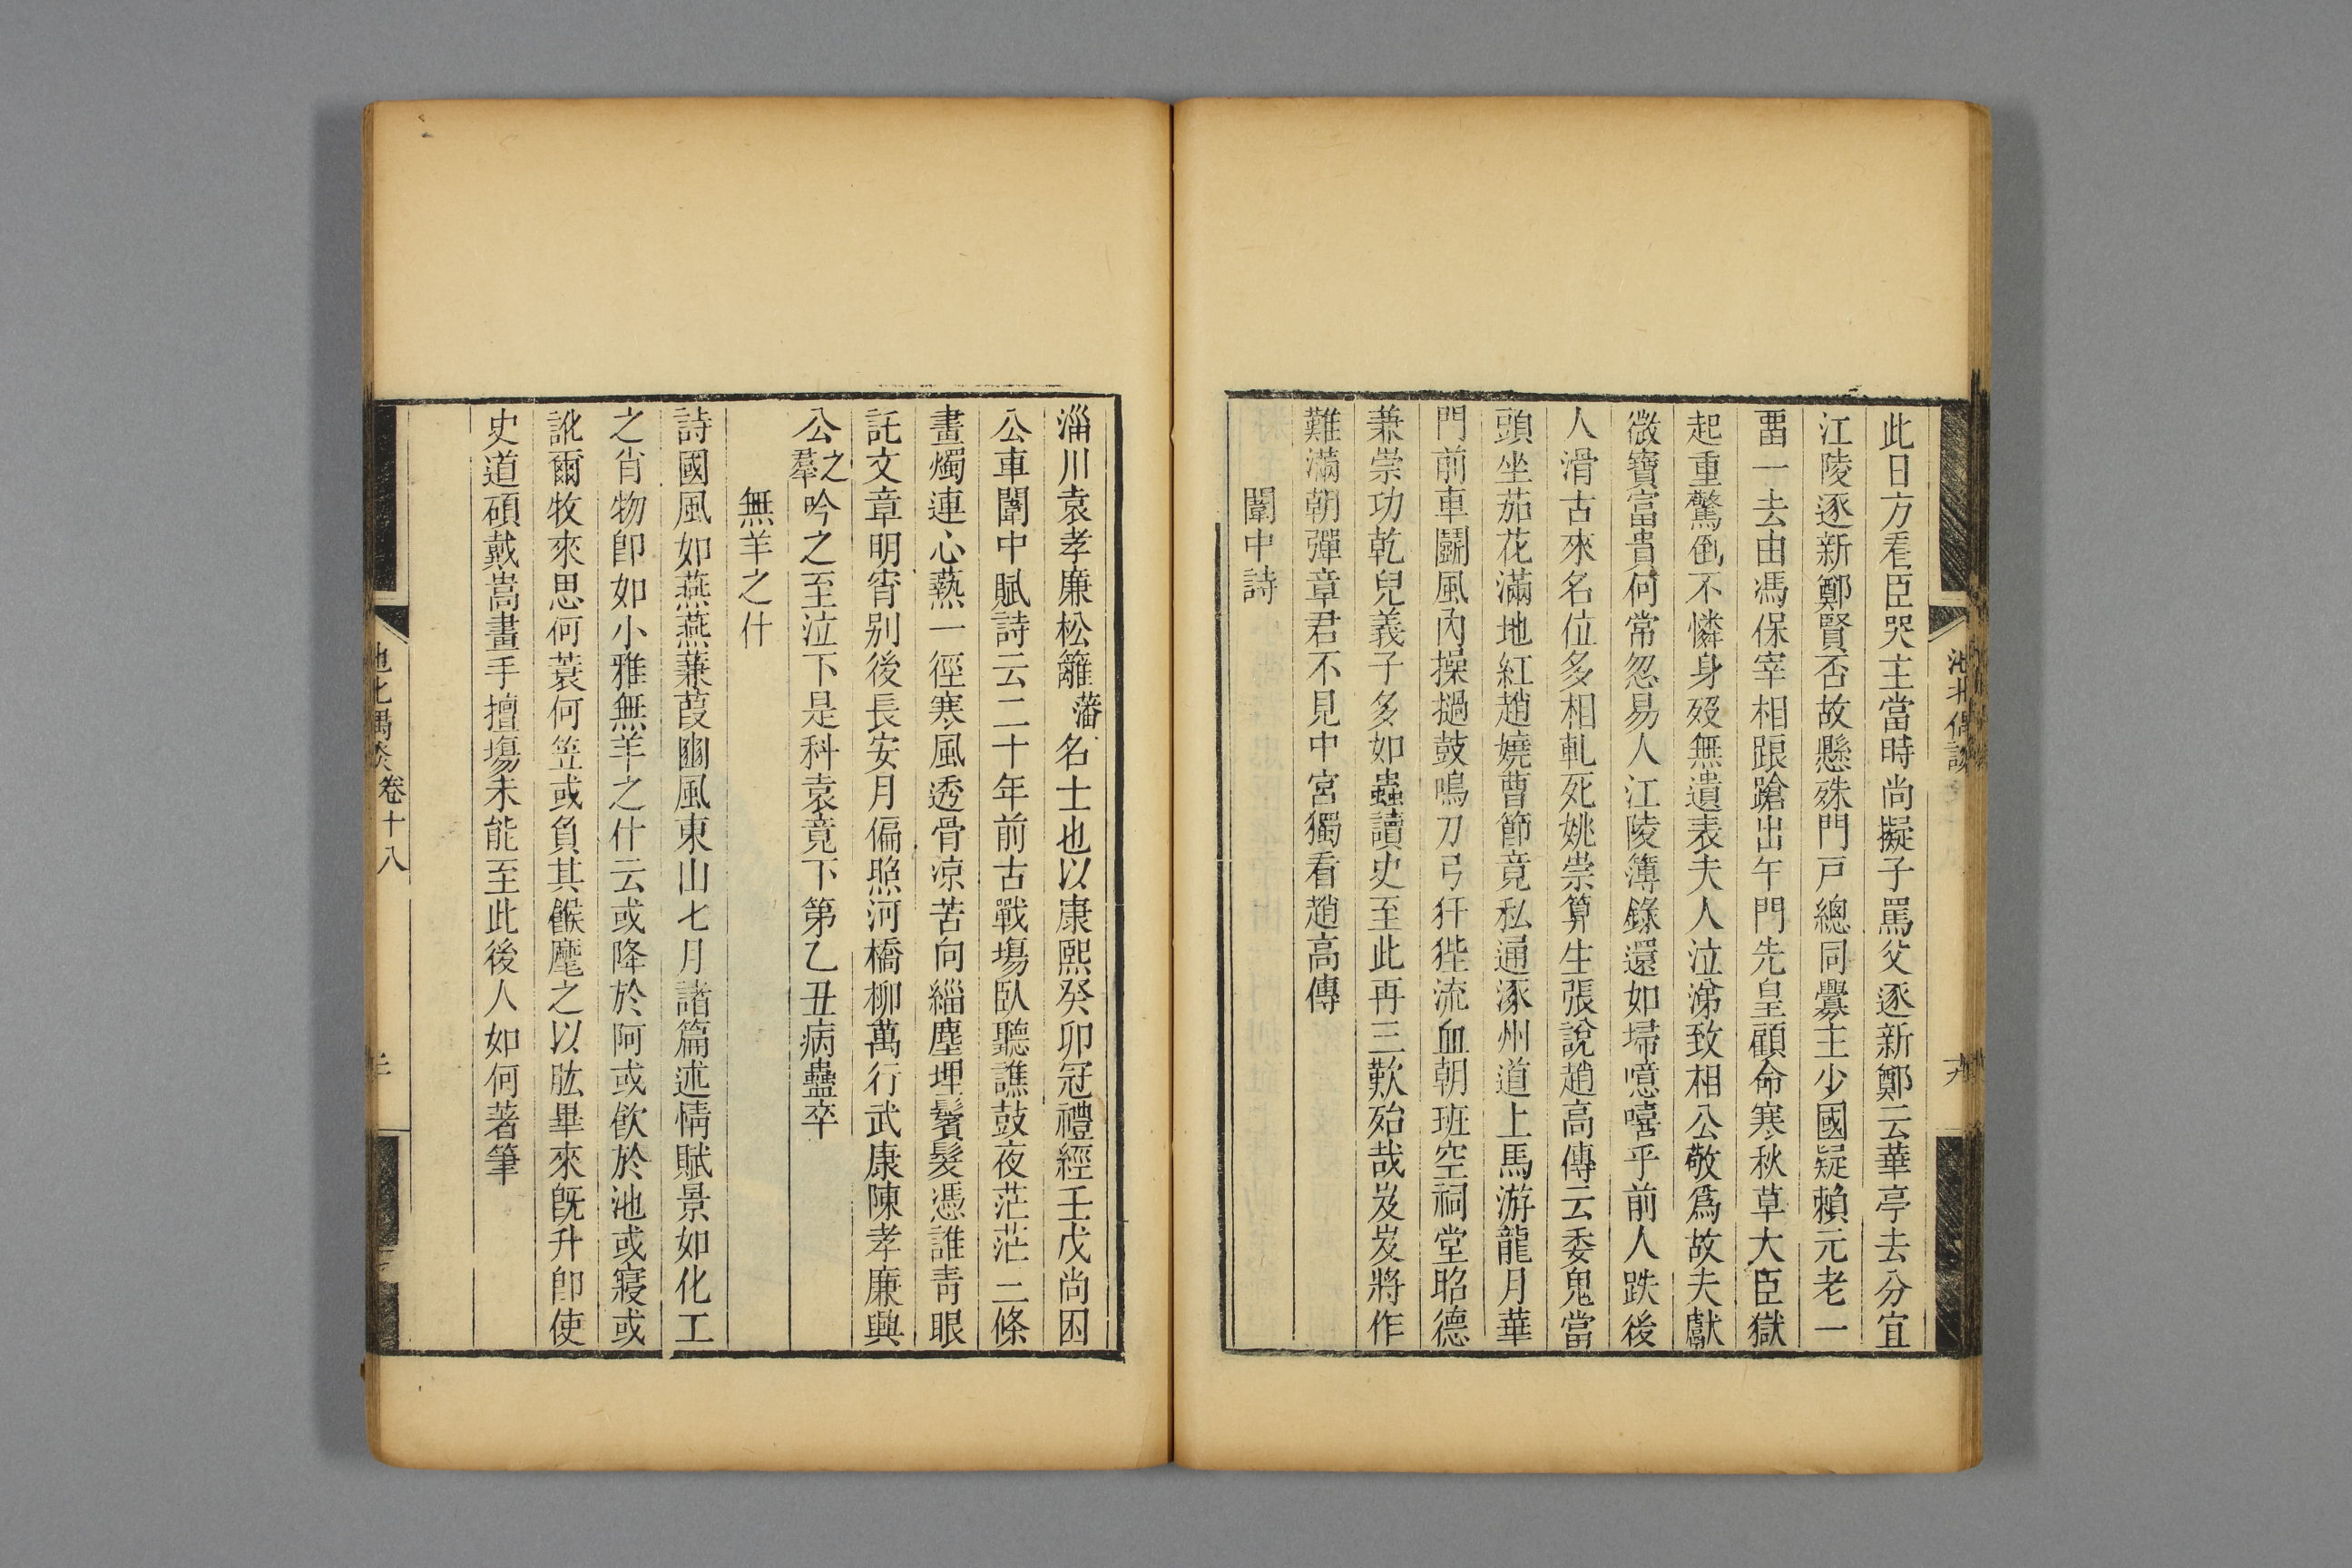 池北偶談
此日方看臣哭主當時尚擬子罵父逐新鄭云華亭去分宜
江陵逐新鄭賢否故懸殊門戸總同釁主少國疑賴元老一
畱一去由馮保宰相踉蹌出午門先皇顧命寒秋草大臣獄
起重驚倒不憐身歿無遺表夫人泣涕致相公敬爲故夫獻
微寶富貴何常忽易人江陵簿錄還如埽噫嘻乎前人跌後
人滑古來名位多相軋死姚崇算生張說趙高傳云委鬼當
頭坐茄花滿地紅趙嬈曹節竟私通涿州道上馬游龍月華
門前車鬭風內操撾鼓鳴刀弓犴狴流血朝班空祠堂昭德
兼崇功乾兒義子多如蟲讀史至此再三歎殆哉岌岌將作
難滿朝彈章君不見中宮獨看趙高傳
闈中詩
淄川袁孝廉松籬藩名士也以康熙癸卯冠禮經壬戌尚困
公車闈中賦詩云二十年前古戰塲臥聽譙鼓夜茫茫三條
畫燭連心熱一徑寒風透骨涼苦向緇塵埋鬢髮憑誰靑眼
託文章明宵别後長安月偏照河橋柳萬行武康陳孝廉興
公之羣吟之至泣下是科袁竟下第乙丑病蠱卒
無羊之什
詩國風如燕燕蒹葭豳風東山七月諸篇述情賦景如化工
之肖物卽如小雅無羊之什云或降於阿或飮於池或寢或
訛爾牧來思何蓑何笠或負其餱麾之以肱畢來旣升卽使
史道碩戴嵩畫手擅塲未能至此後人如何著筆
池北偶談 卷十八